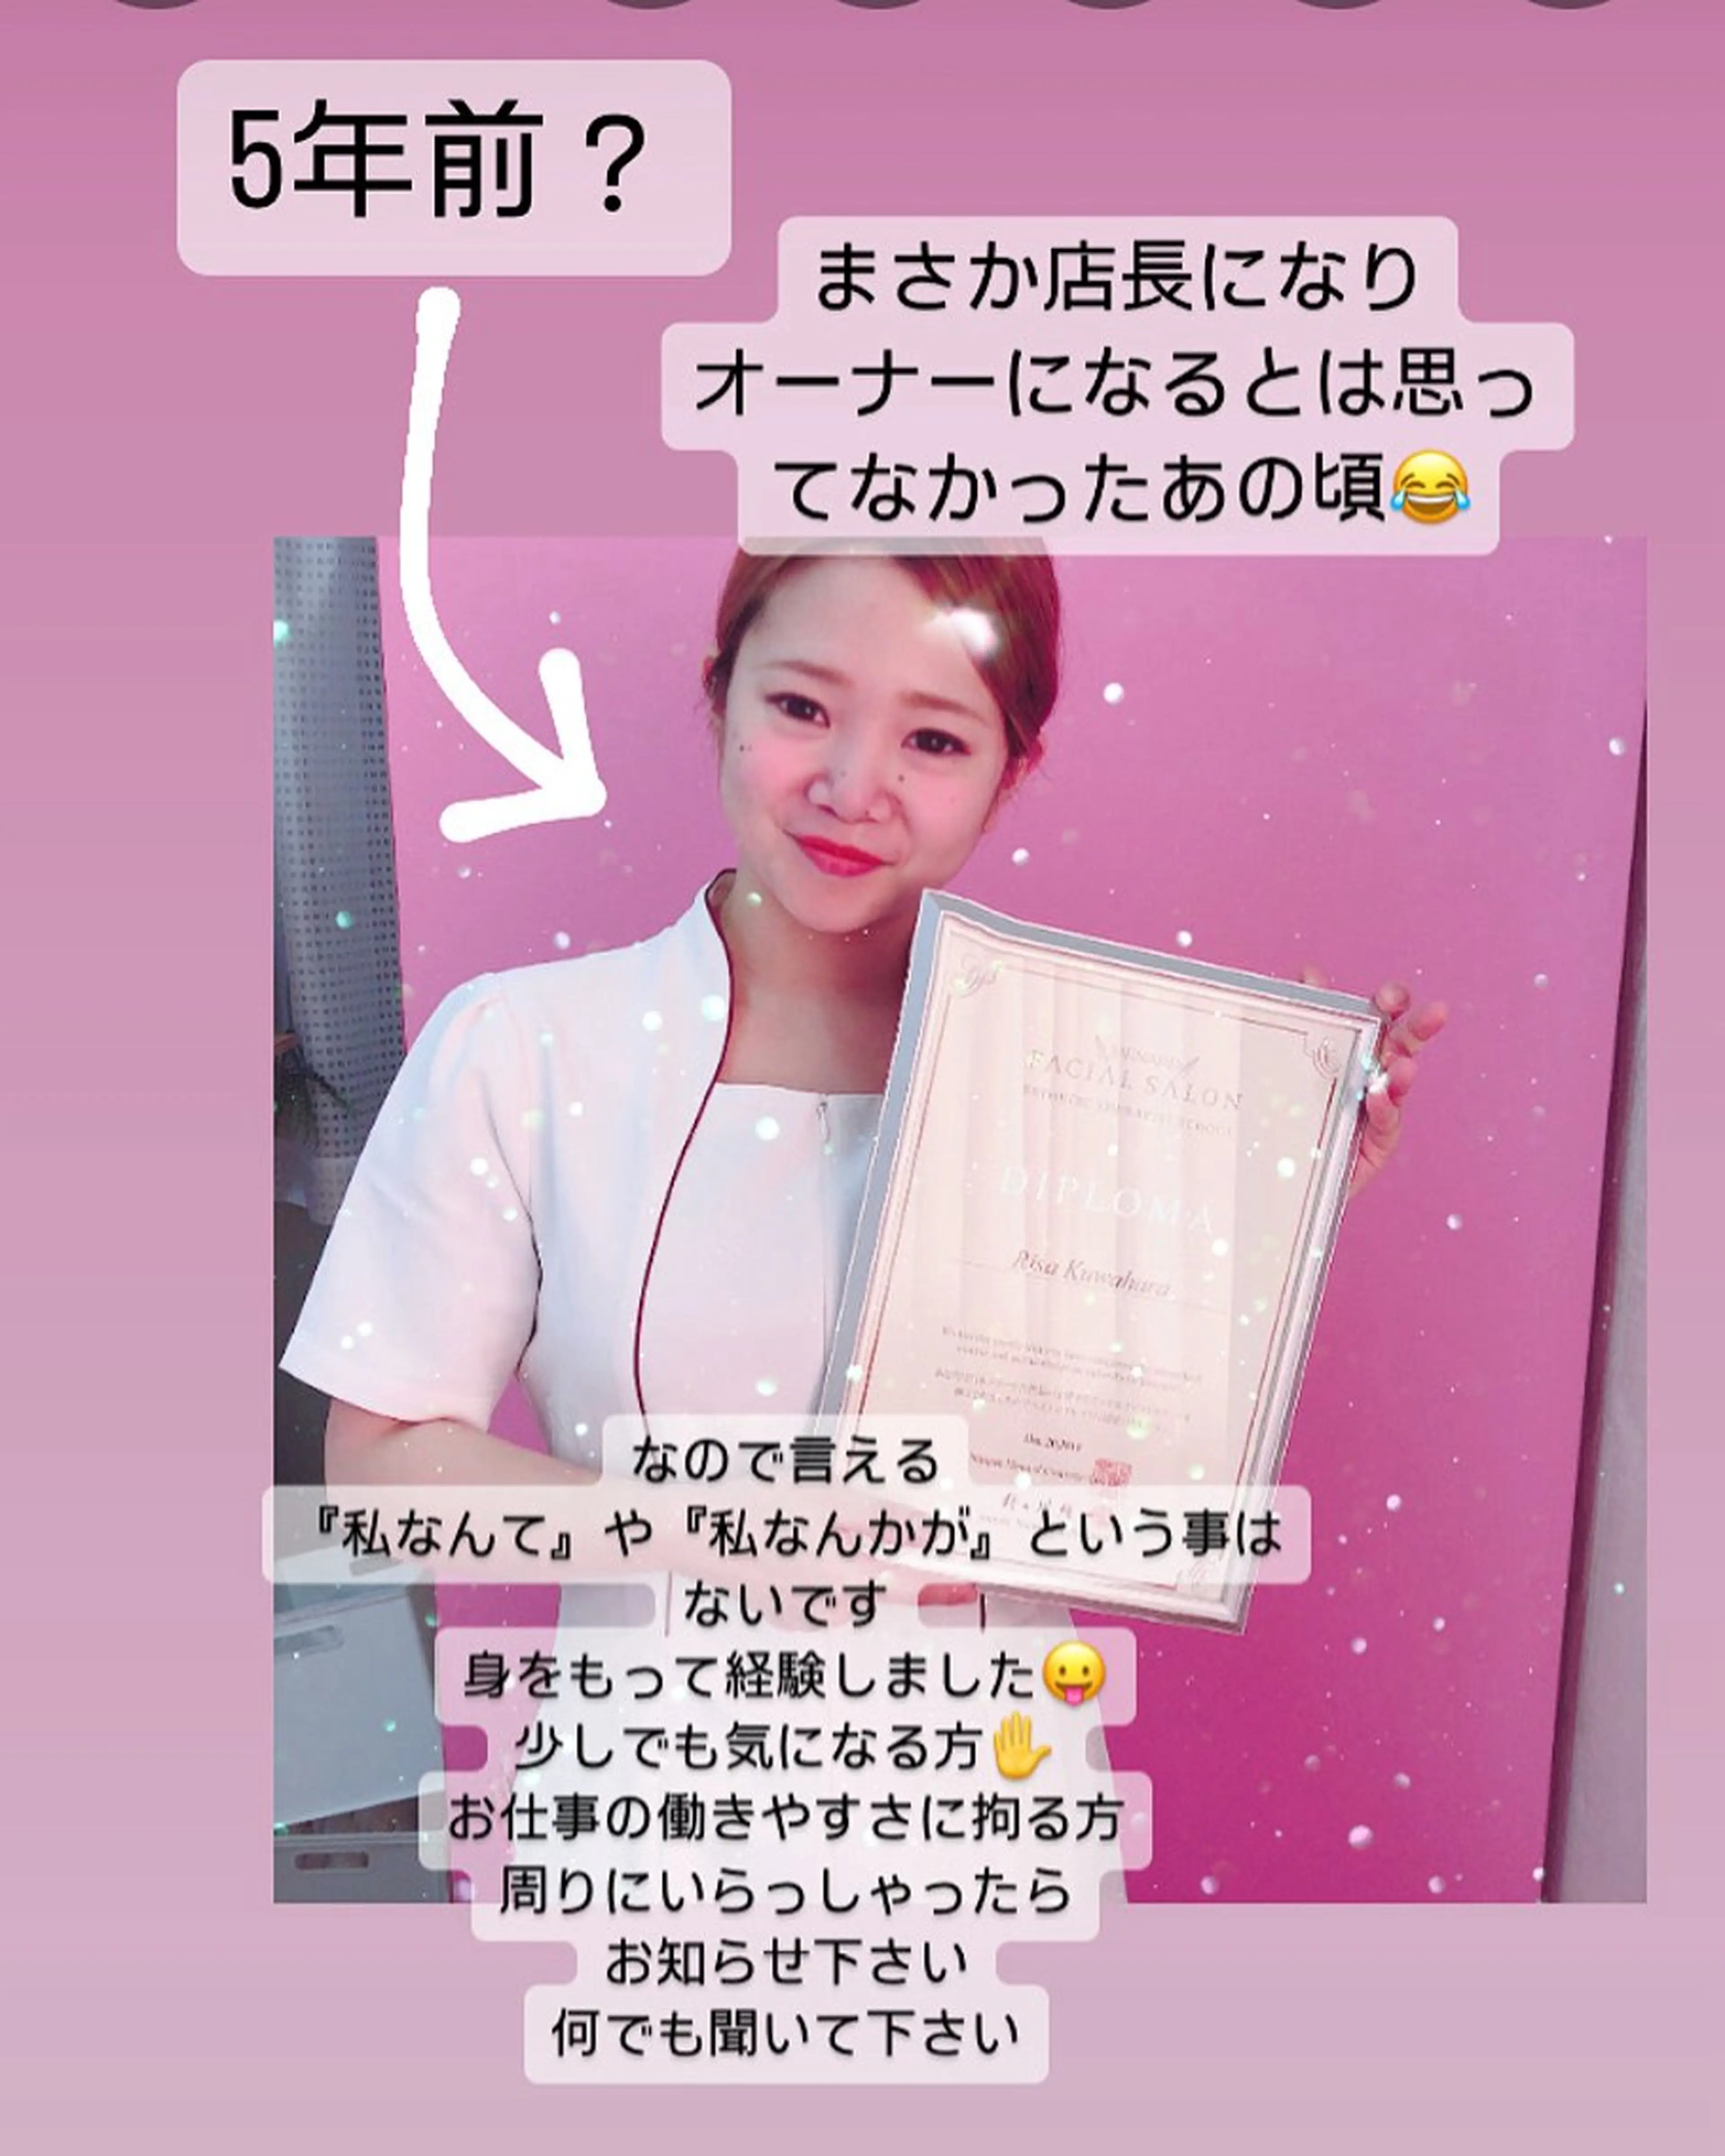 5年前？
まさか店長になり
オーナーになるとは思っ
てなかったあの頃😂
FACIAL SALON
DIPLOMA
Risa Kuwahara
なので言える
『私なんて』や『私なんかが』という事は
ないです
身をもって経験しました😛
少しでも気になる方✋
お仕事の働きやすさに拘る方
周りにいらっしゃったら
お知らせ下さい
何でも聞いて下さい